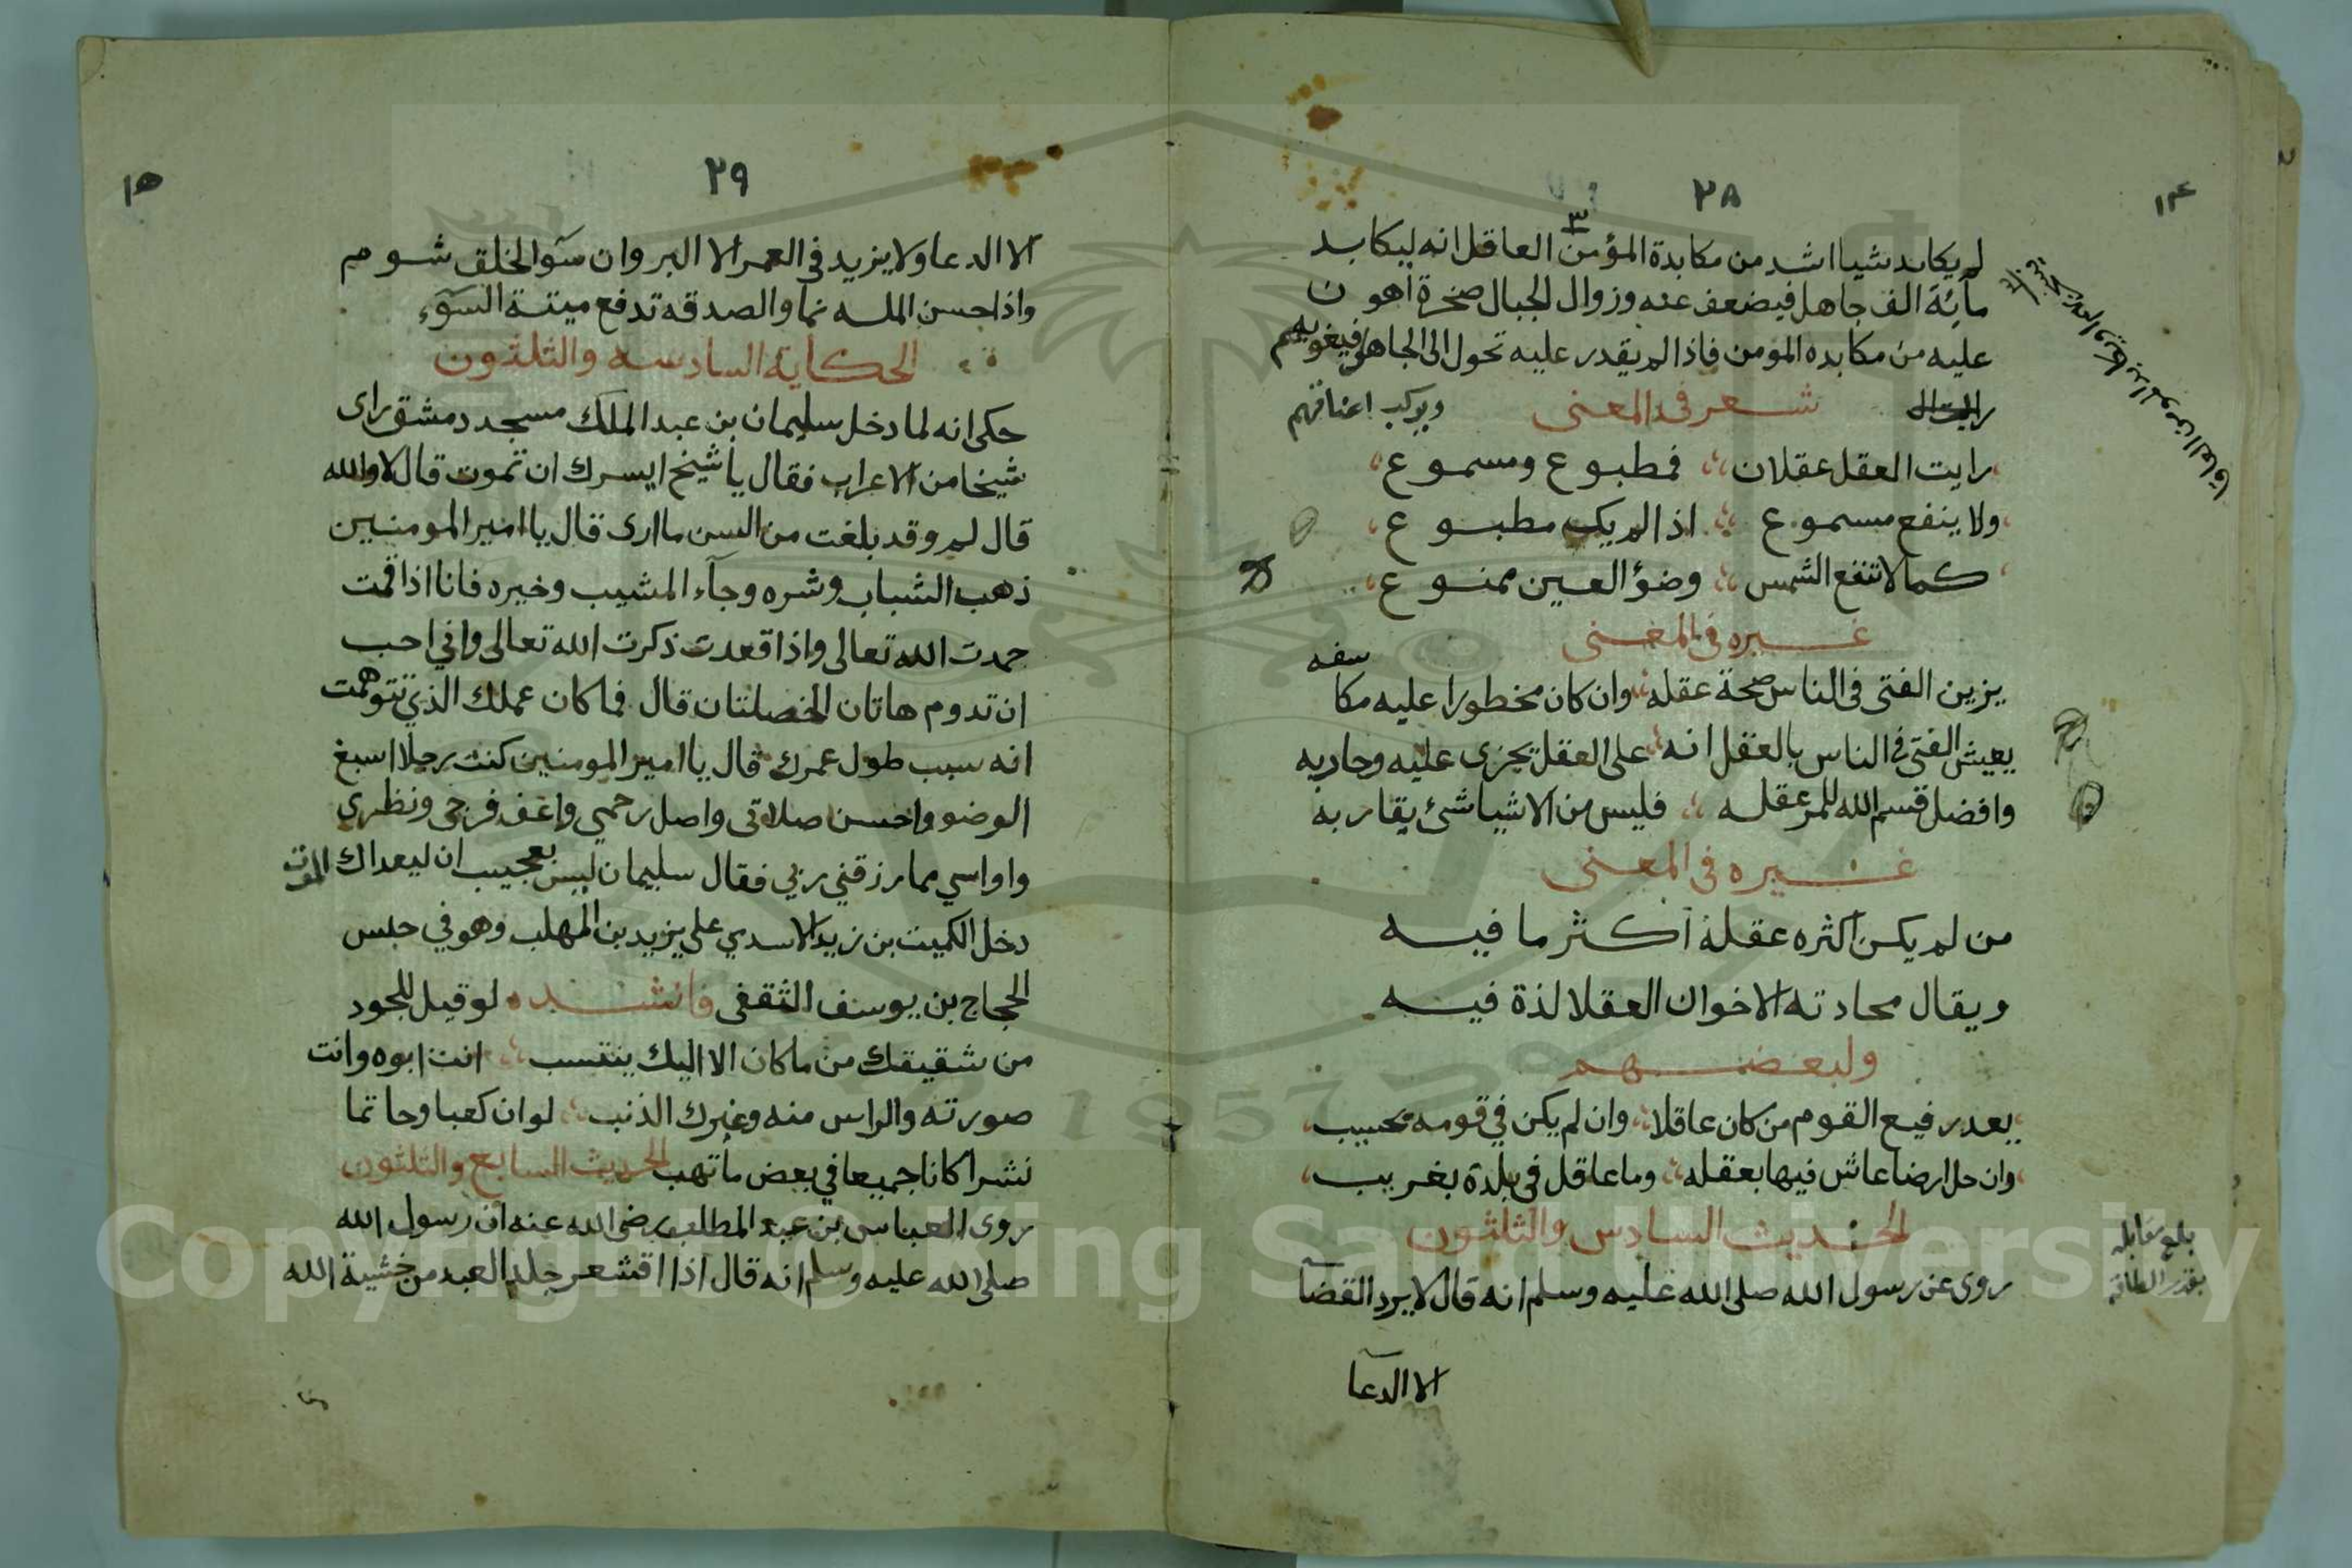 ٢٨
١٤
لم يكابد شيا اشد من مكابدة المؤمن العاقل انه ليكابد
مآئة الف جاهل فيضعف عنه وزوال الجبال صخرة اهون
عليه من مكابده المومن فاذا لم يقدر عليه تحول الى الجاهل فيغويهم
ويركب اعناقهم
شعر فى المعنى
رايت العقل عقلان فمطبوع ومسموع
ولا ينفع مسموع اذا لم يك مطبوع
كما لا تنفع الشمس وضؤ العين ممنوع
غيره فى المعنى
يزين الفتى فى الناس صحة عقله وان كان مخطورا عليه مكاسفه
يعيش الفتى فى الناس بالعقل انه على العقل يجزى عليه وجاربه
وافضل قسم الله للمر عقله فليس من الاشيا شئ يقاربه
غيره فى المعنى
من لم يكن اكثره عقله اكثر ما فيه
ويقال محادته الاخوان العقلا لذة فيه
ولبعضهم
يعد رفيع القوم من كان عاقلا وان لم يكن في قومه محسيب
وان حل ارضا عاش فيها بعقله وما عاقل فى بلدة بغريب
الحديث السادس والثلثون
روى عن رسول الله صلى الله عليه وسلم انه قال لا يرد القضآ
الا الدعآ
بلغ مقابله
بقدر الطاقة
٢٩
١٥
الا الدعا ولا يزيد فى العمر الا البر وان سوٓ الخلق شوم
واذا حسن الملـه نما والصدقه تدفع ميتة السوٓء
الحكاية السادسه والثلثون
حكى انه لما دخل سليمان بن عبد الملك مسجد دمشق راى
شيخا من الاعراب فقال يا شيخ ايسرك ان تموت قال لا والله
قال لم وقد بلغت من السن ما ارى قال يا امير المومنين
ذهب الشباب وشره وجآء المشيب وخيره فانا اذا قمت
حمدت الله تعالى واذا قعدت ذكرت الله تعالى واني احب
ان تدوم هاتان الخصلتان قال فما كان عملك الذي تتوهمت
انه سبب طول عمرك قال يا امير المومنين كنت رجلا اسبغ
الوضو واحسن صلاتى واصل رحمي واغف فرجى ونظري
واواسي مما رزقني ربي فقال سليمان ليس بعجيب ان ليعداك الموت
دخل الكميت بن زيد الاسدي على يزيد بن المهلب وهو في حبس
الحجاج بن يوسف الثقفى فانشده لو قيل للجود
من شقيقك من ما كان الا اليك ينتسب انت ابوه وانت
صورته والراس منه وغيرك الذنب لو ان كعبا وحاتما
نشرا كانا جميعا في بعض ما تهب الحديث السابع والثلثون
روى العباس بن عبد المطلب رضى الله عنه ان رسول الله
صلى الله عليه وسلم انه قال اذا اقشعر جلد العبد من خشية الله
1957
Copyright © King Saud University